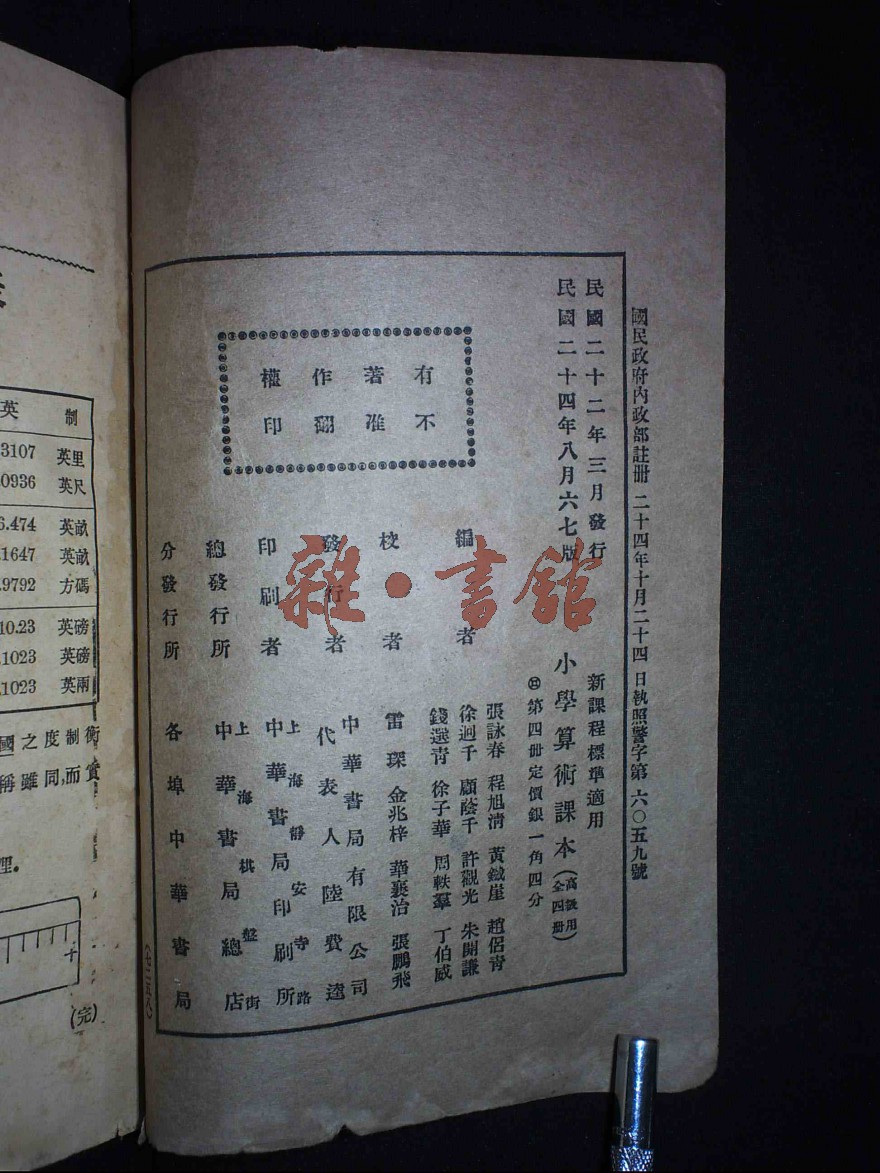 國民政府內政部註冊 二十四年十月二十四日執照警字第六〇五九號
民國二十二年三月發行
民國二十四年八月六七版
新課程標準適用
小學算術課本(高級用 全四冊)
第四冊定價銀一角四分
有著作權
不准翻印
編者
張詠春 程旭清 黃鐵崖 趙侶青
徐迥千 顧蔭千 許觀光 朱開謙
錢選青 徐子華 周軼羣 丁伯威
校者
雷琛 金兆梓 華襄治 張鵬飛
發行者
中華書局有限公司
代表人陸費逵
印刷者
上海靜安寺路
中華書局印刷所
總發行所
上海棋盤街
中華書局總店
分發行所
各埠中華書局
(七二五八)
雜·書館
英 制
3107 英里
0936 英尺
6.474 英畝
1647 英畝
9792 方碼
10.23 英磅
1023 英磅
1023 英兩
國之度制衡
稱雖同,而實
理。
十
(完)